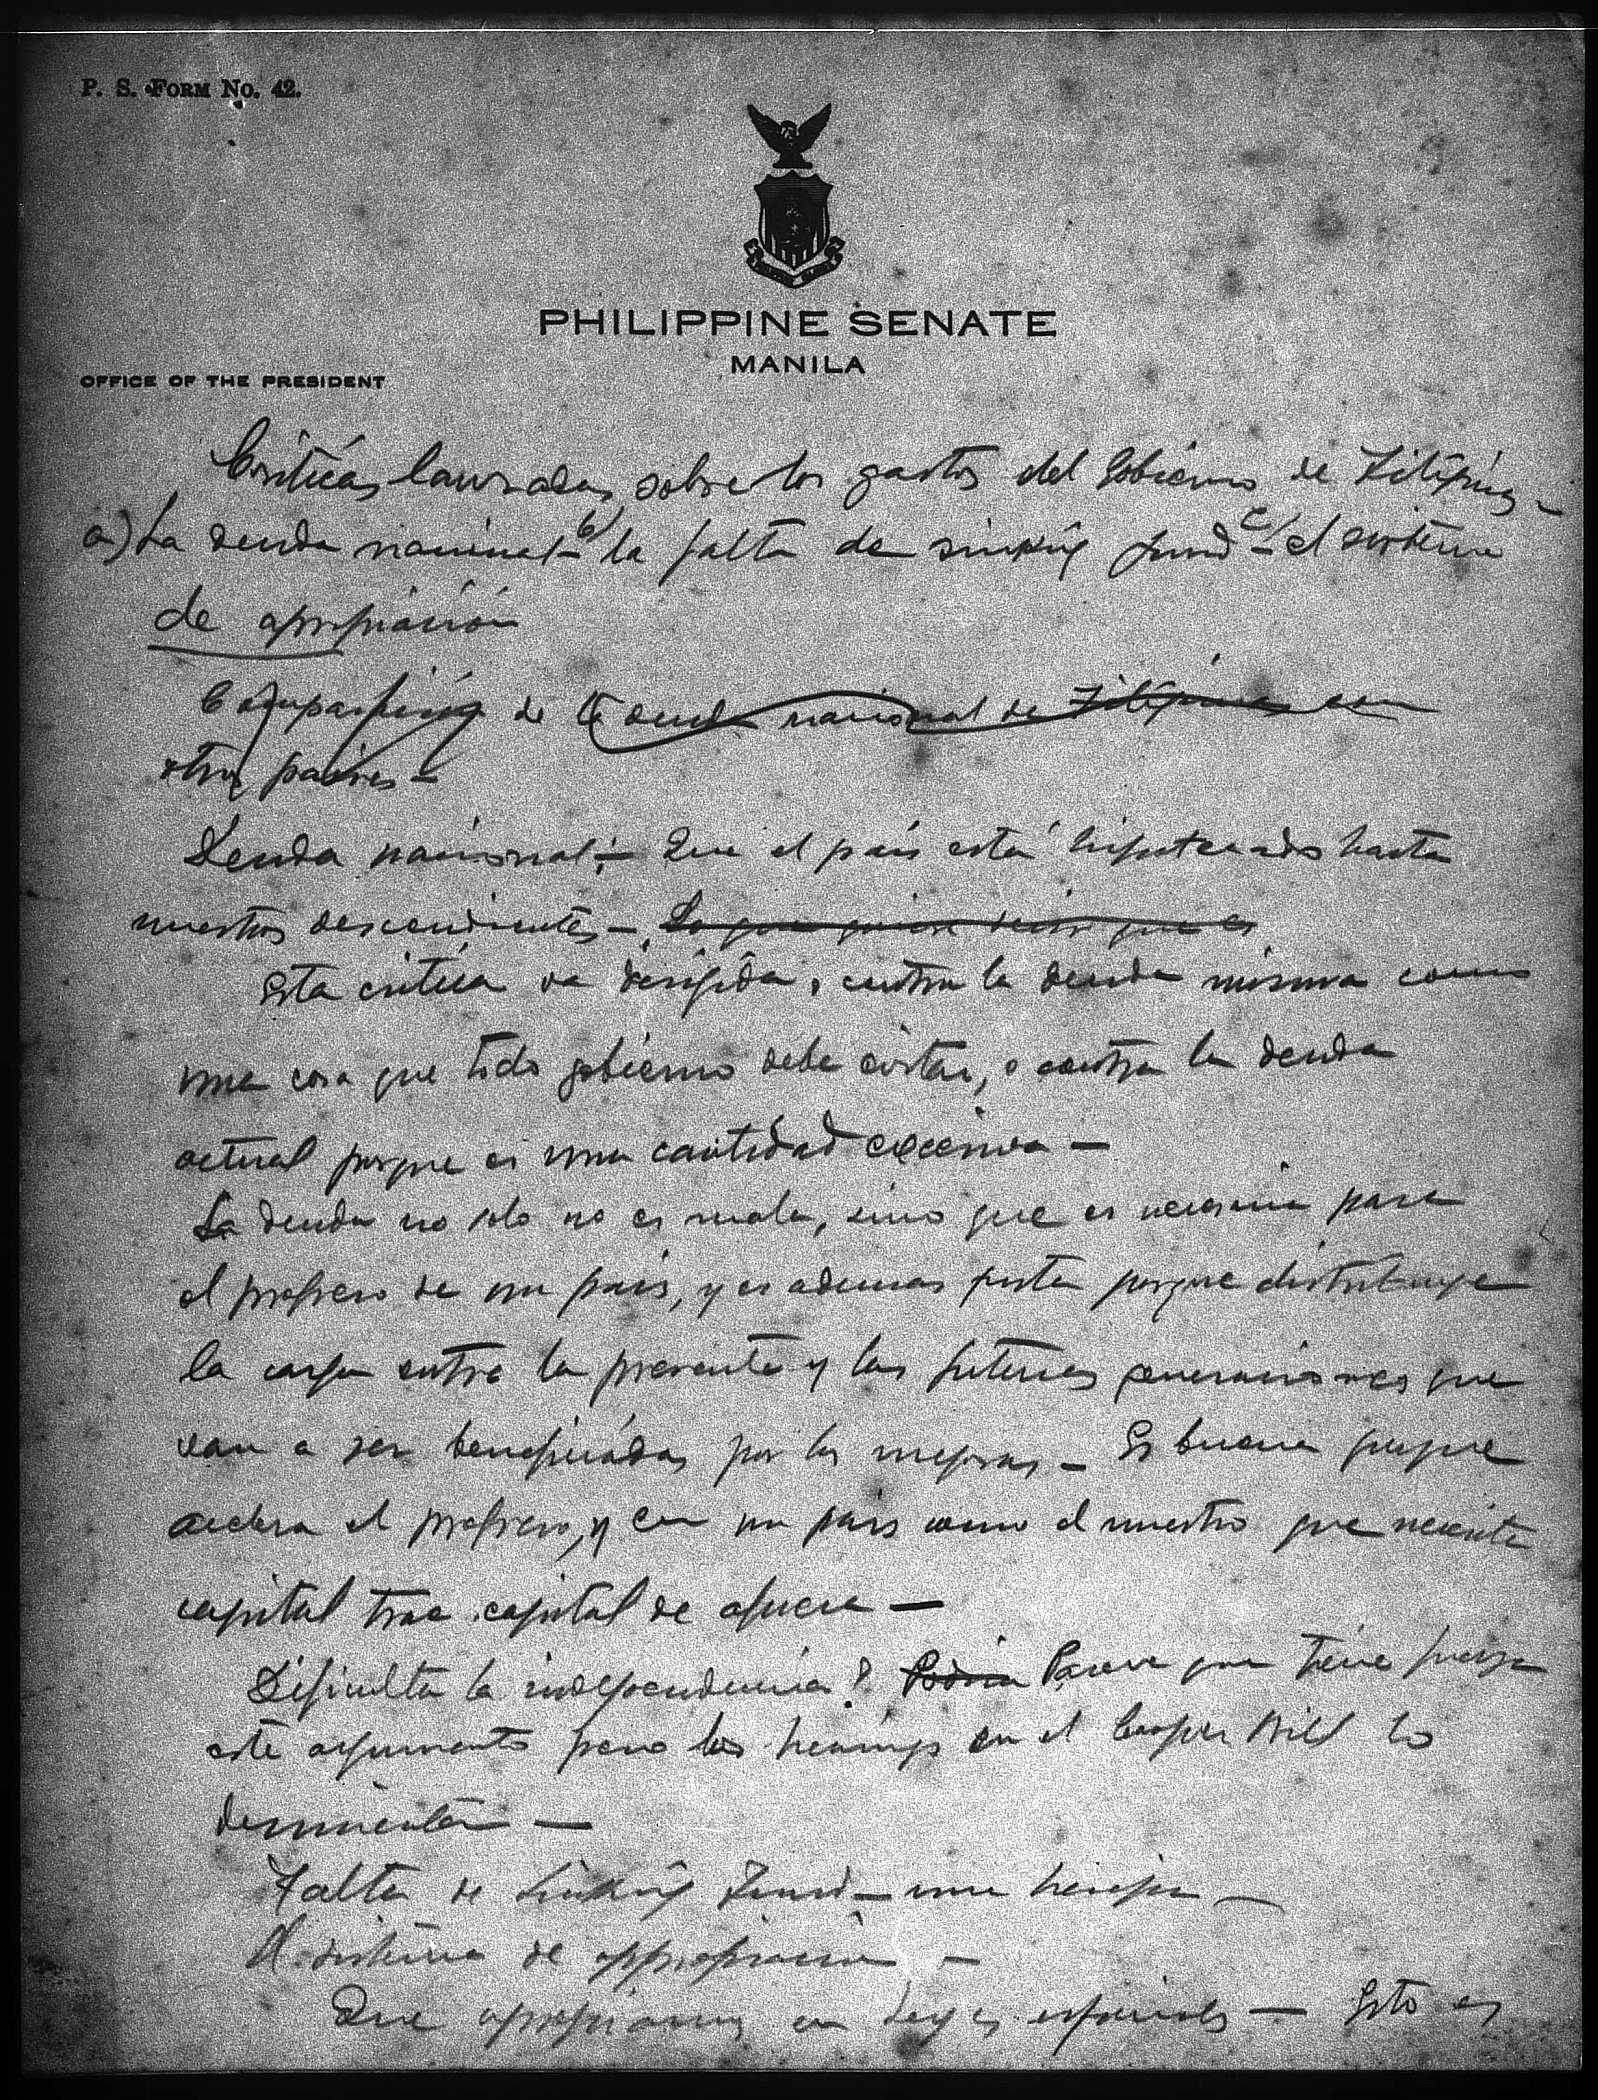 P. S. FORM NO. 42.
PHILIPPINE SENATE
MANILA
OFFICE OF THE PRESIDENT
Criticas lanzadas sobre los gastos del Gobierno de Filipinas -
a) La deuda nacional - b) la falta de sinking fund - c) el sistema
de apropiación
Comparación de la deuda nacional de Filipinas con
otros paises -
Deuda nacional: - Que el pais está hipotecado hasta
nuestros descendientes - Lo que quiere decir que es
Esta critica va dirigida o contra la deuda misma como
una cosa que todo gobierno debe evitar, o contra la deuda
actual porque es una cantidad excesiva -
La deuda no solo no es mala, sino que es necesaria para
el progreso de un pais, y es ademas justa porque distribuye
la carga entre la presente y las futuras generaciones que
van a ser beneficiadas por las mejoras - Es buena porque
acelera el progreso, y en un pais como el nuestro que necesita
capital trae capital de afuera -
Dificulta la independencia? Podria Parece que tiene fuerza
este argumento pero los hearings en el Cooper Bill lo
desmienten -
Falta de Sinking Fund - una
El sistema de appropiacion -
Que apropiamos en leyes especiales - Esto es